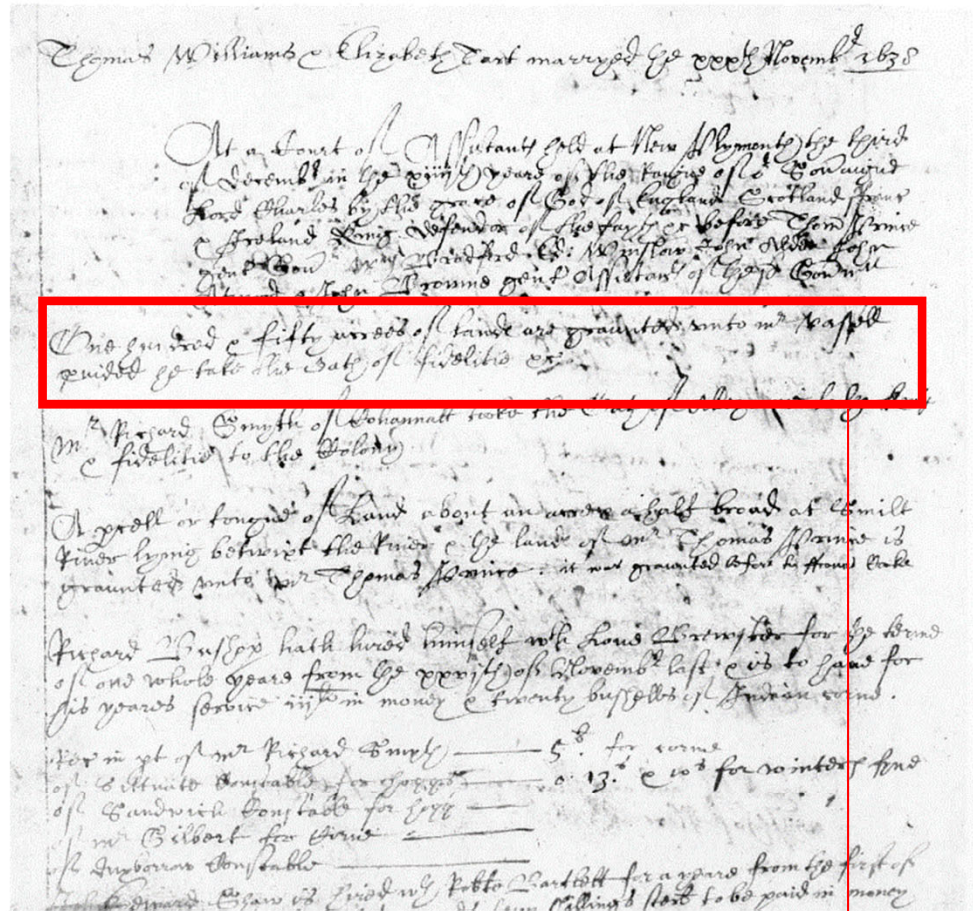 Thomas Williams & Elizabeth Tart marryed the xxxth Novembr 1638
At a Court of Assistants held at New Plymouth the third
of Decembr in the xiiijth yeare of the raigne of or Souaigne
Lord Charles by the grace of God of England Scotland France
& Ireland King Defendor of the fayth &c before Thom Prince
gent Gour Wm Bradford Ed: Winslow John Alden John
& John Browne gent Assistants of the sd Gourmt
One hundred & fifty acrees of lands are graunted vnto mr Vassell
pvided he take the Oath of fidelitie &c
Mr Richard Smyth of Cohannatt tooke the Oath of
& fidelitie to the Colony
A pcell or tongue of Land about an acree & half broad at Smilt
River lying betwixt the River & the land of mr Thomas Prince is
graunted vnto mr Thomas Prince. it was graunted before to Francis Cooke
Richard Bushop hath hired himself wth Loue Brewster for the terme
of one whole yeare from the xxvijth of Novembr last, & is to haue for
his yeares service in money & twenty busselles of Indian corne.
Rec in pt of mr Richard Smyth 5s for corne
of Scittuate Constable for 13s & ws for winters fyne
of Sandwich Constable for hogg
of mr Gilbert for Corne
of Duxborrow Constable
Edward Shaw is hired wth Robte Bartlett for a yeare from the first of
shillings sterl to be paid in money